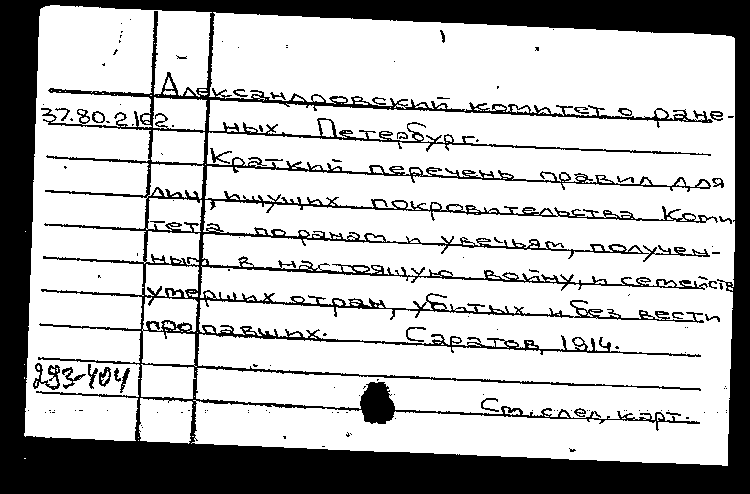 Александровский комитет о ране-
37.80.2162. ных. Петербург.
Краткий перечень правил для
лиц, ищущих покровительства Коми-
тета по ранам и увечьям, получен-
ным в настоящую войну, и семейств
умерших от ран, убитых и без вести
пропавших. Саратов, 1914.
293-404
См. след. карт.